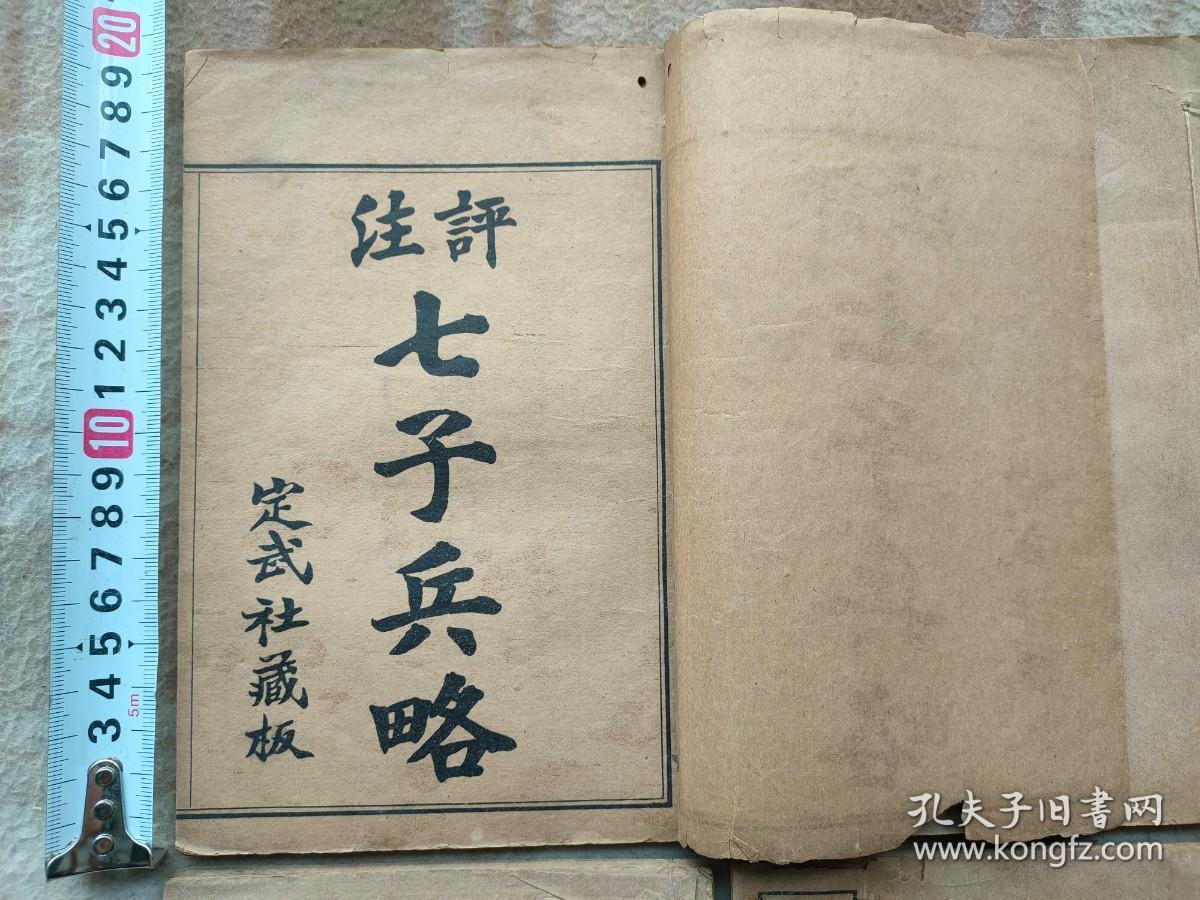 評注
七子兵略
定武社藏板
20
9
8
7
6
5
4
3
2
1
10
9
8
7
6
5
4
3
5m
孔夫子旧書网
www.kongfz.com